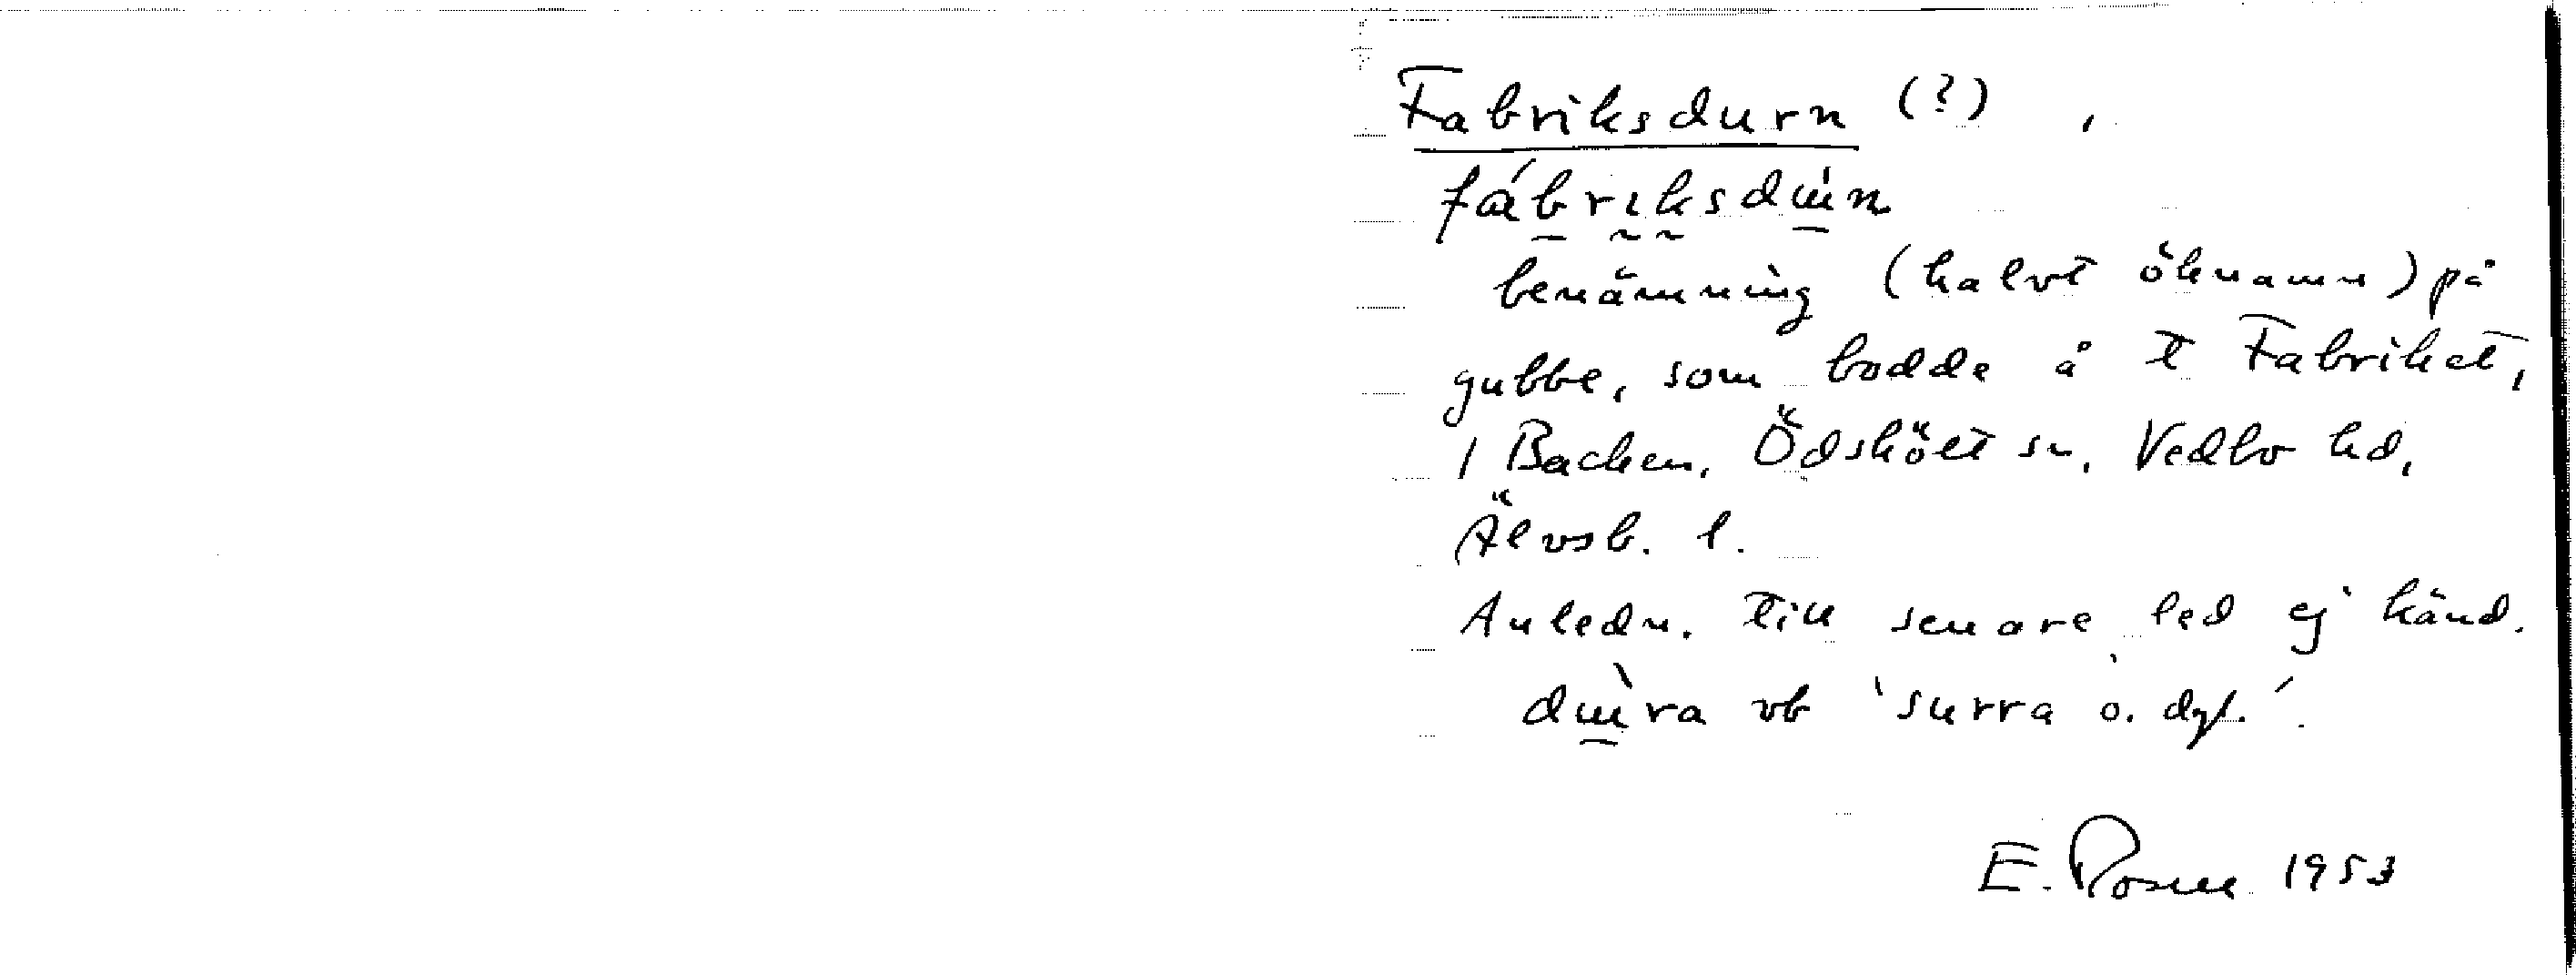 Fabriksdurn (?) ,
fábrıksdɯ́n
benämning (halvt öknamn) på
gubbe, som bodde å t Fabriket,
1 Backen, Ödskölt sn, Vedbo hd,
Älvsb. l.
Anledn. till senare led ej känd.
dɯ̀ra vb 'surra o. dyl.'.
E. Rosell 1953